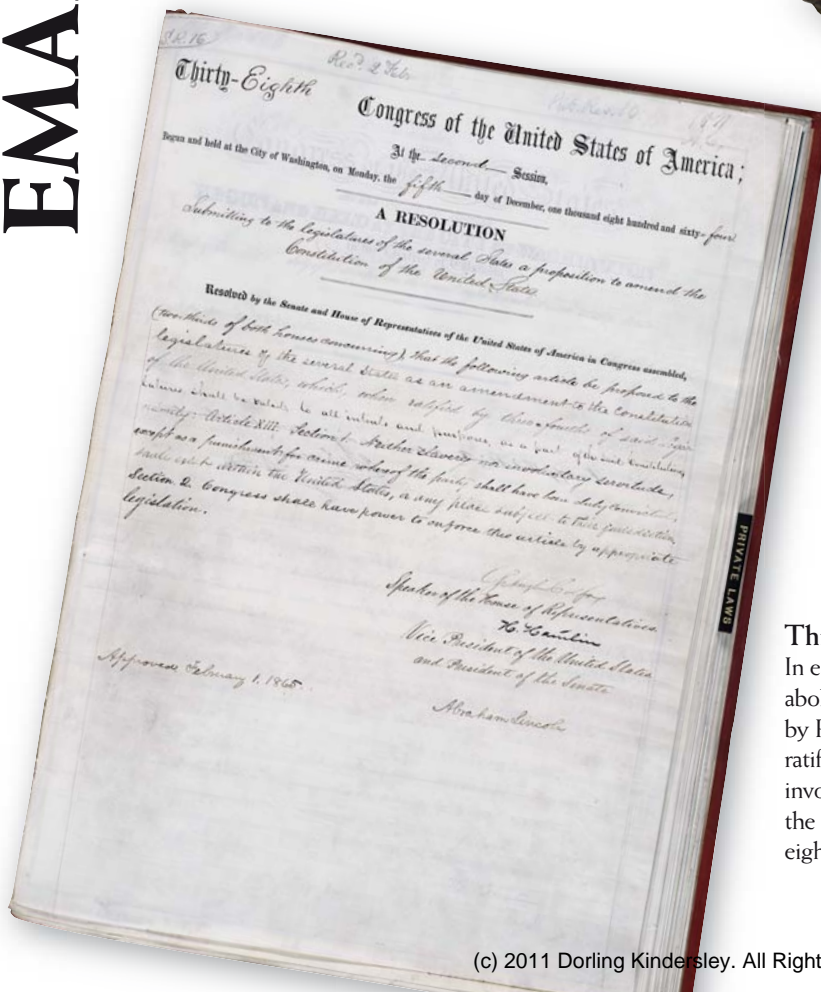 EMA
S.R. 16
Rec'd. 2 Feb
Thirty-Eighth
Congress of the United States of America;
At the second Session,
Begun and held at the City of Washington, on Monday, the fifth day of December, one thousand eight hundred and sixty-four
A RESOLUTION
Submitting to the legislatures of the several States a proposition to amend the
Constitution of the United States
Resolved by the Senate and House of Representatives of the United States of America in Congress assembled,
(two-thirds of both houses concurring), that the following article be proposed to the
legislatures of the several States as an amendment to the Constitution
of the United States, which, when ratified by three-fourths of said Legis
latures shall be valid, to all intents and purposes, as a part of the said Constitution,
namely: Article XIII. Section 1. Neither slavery nor involuntary servitude,
except as a punishment for crime whereof the party shall have been duly convicted,
shall exist within the United States, or any place subject to their jurisdiction.
Section 2. Congress shall have power to enforce this article by appropriate
legislation.
Schuyler Colfax
Speaker of the House of Representatives.
H. Hamlin
Vice President of the United States
and President of the Senate
Approved February 1, 1865.
Abraham Lincoln
PRIVATE LAWS
Th
In e
abol
by
ratif
invo
the
eigh
(c) 2011 Dorling Kindersley. All Right